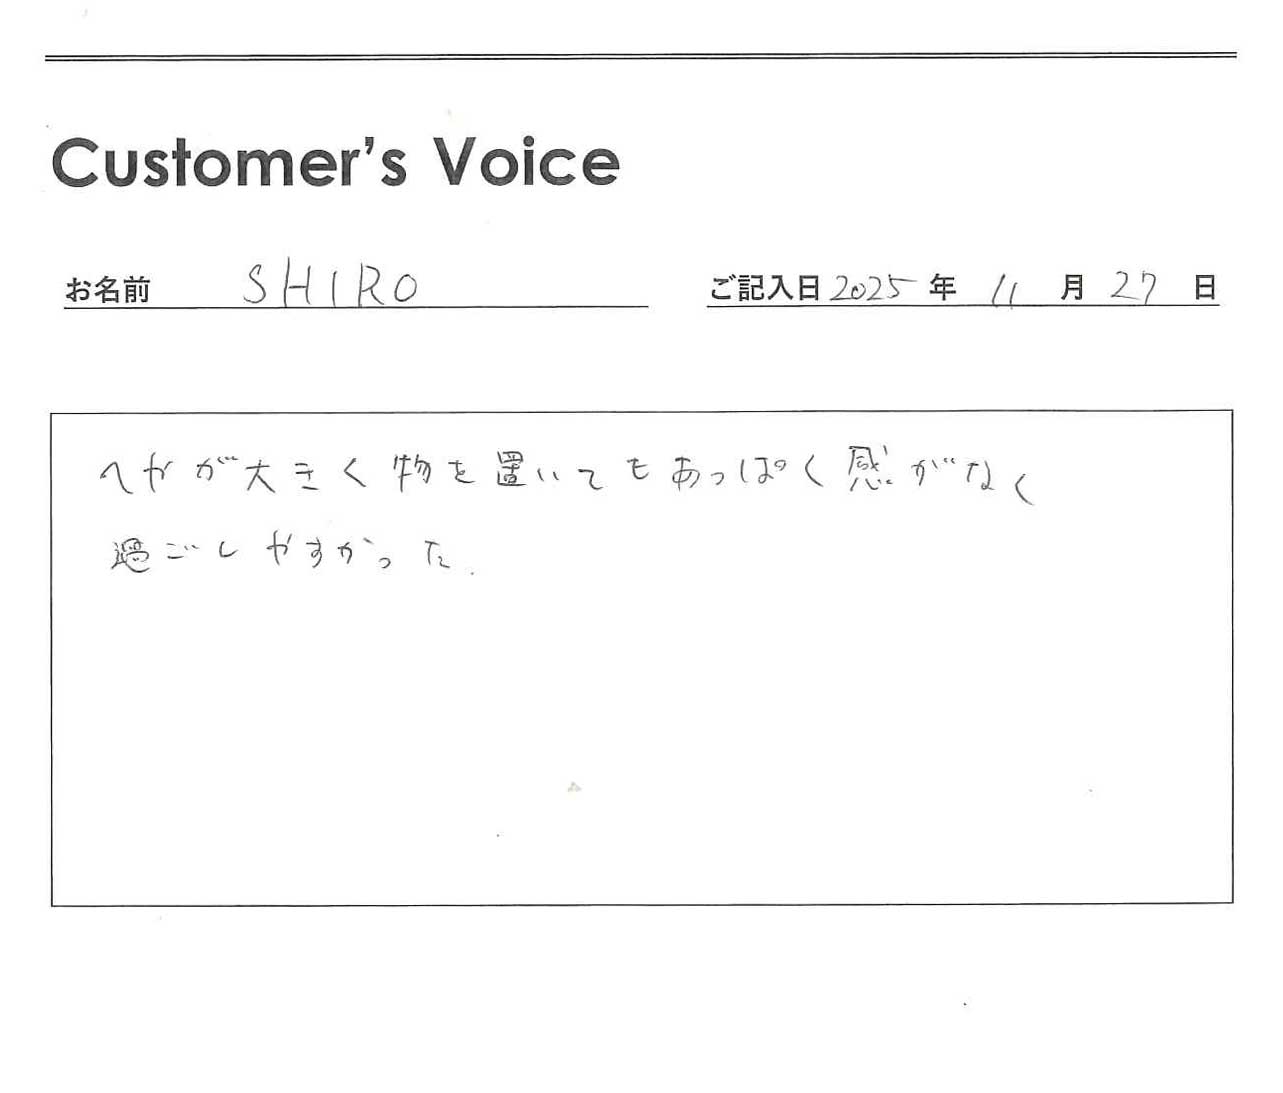 Customer's Voice
お名前 SHIRO
ご記入日 2025 年 11 月 27 日
へやが大きく物を置いてもあっぱく感がなく
過ごしやすかった.